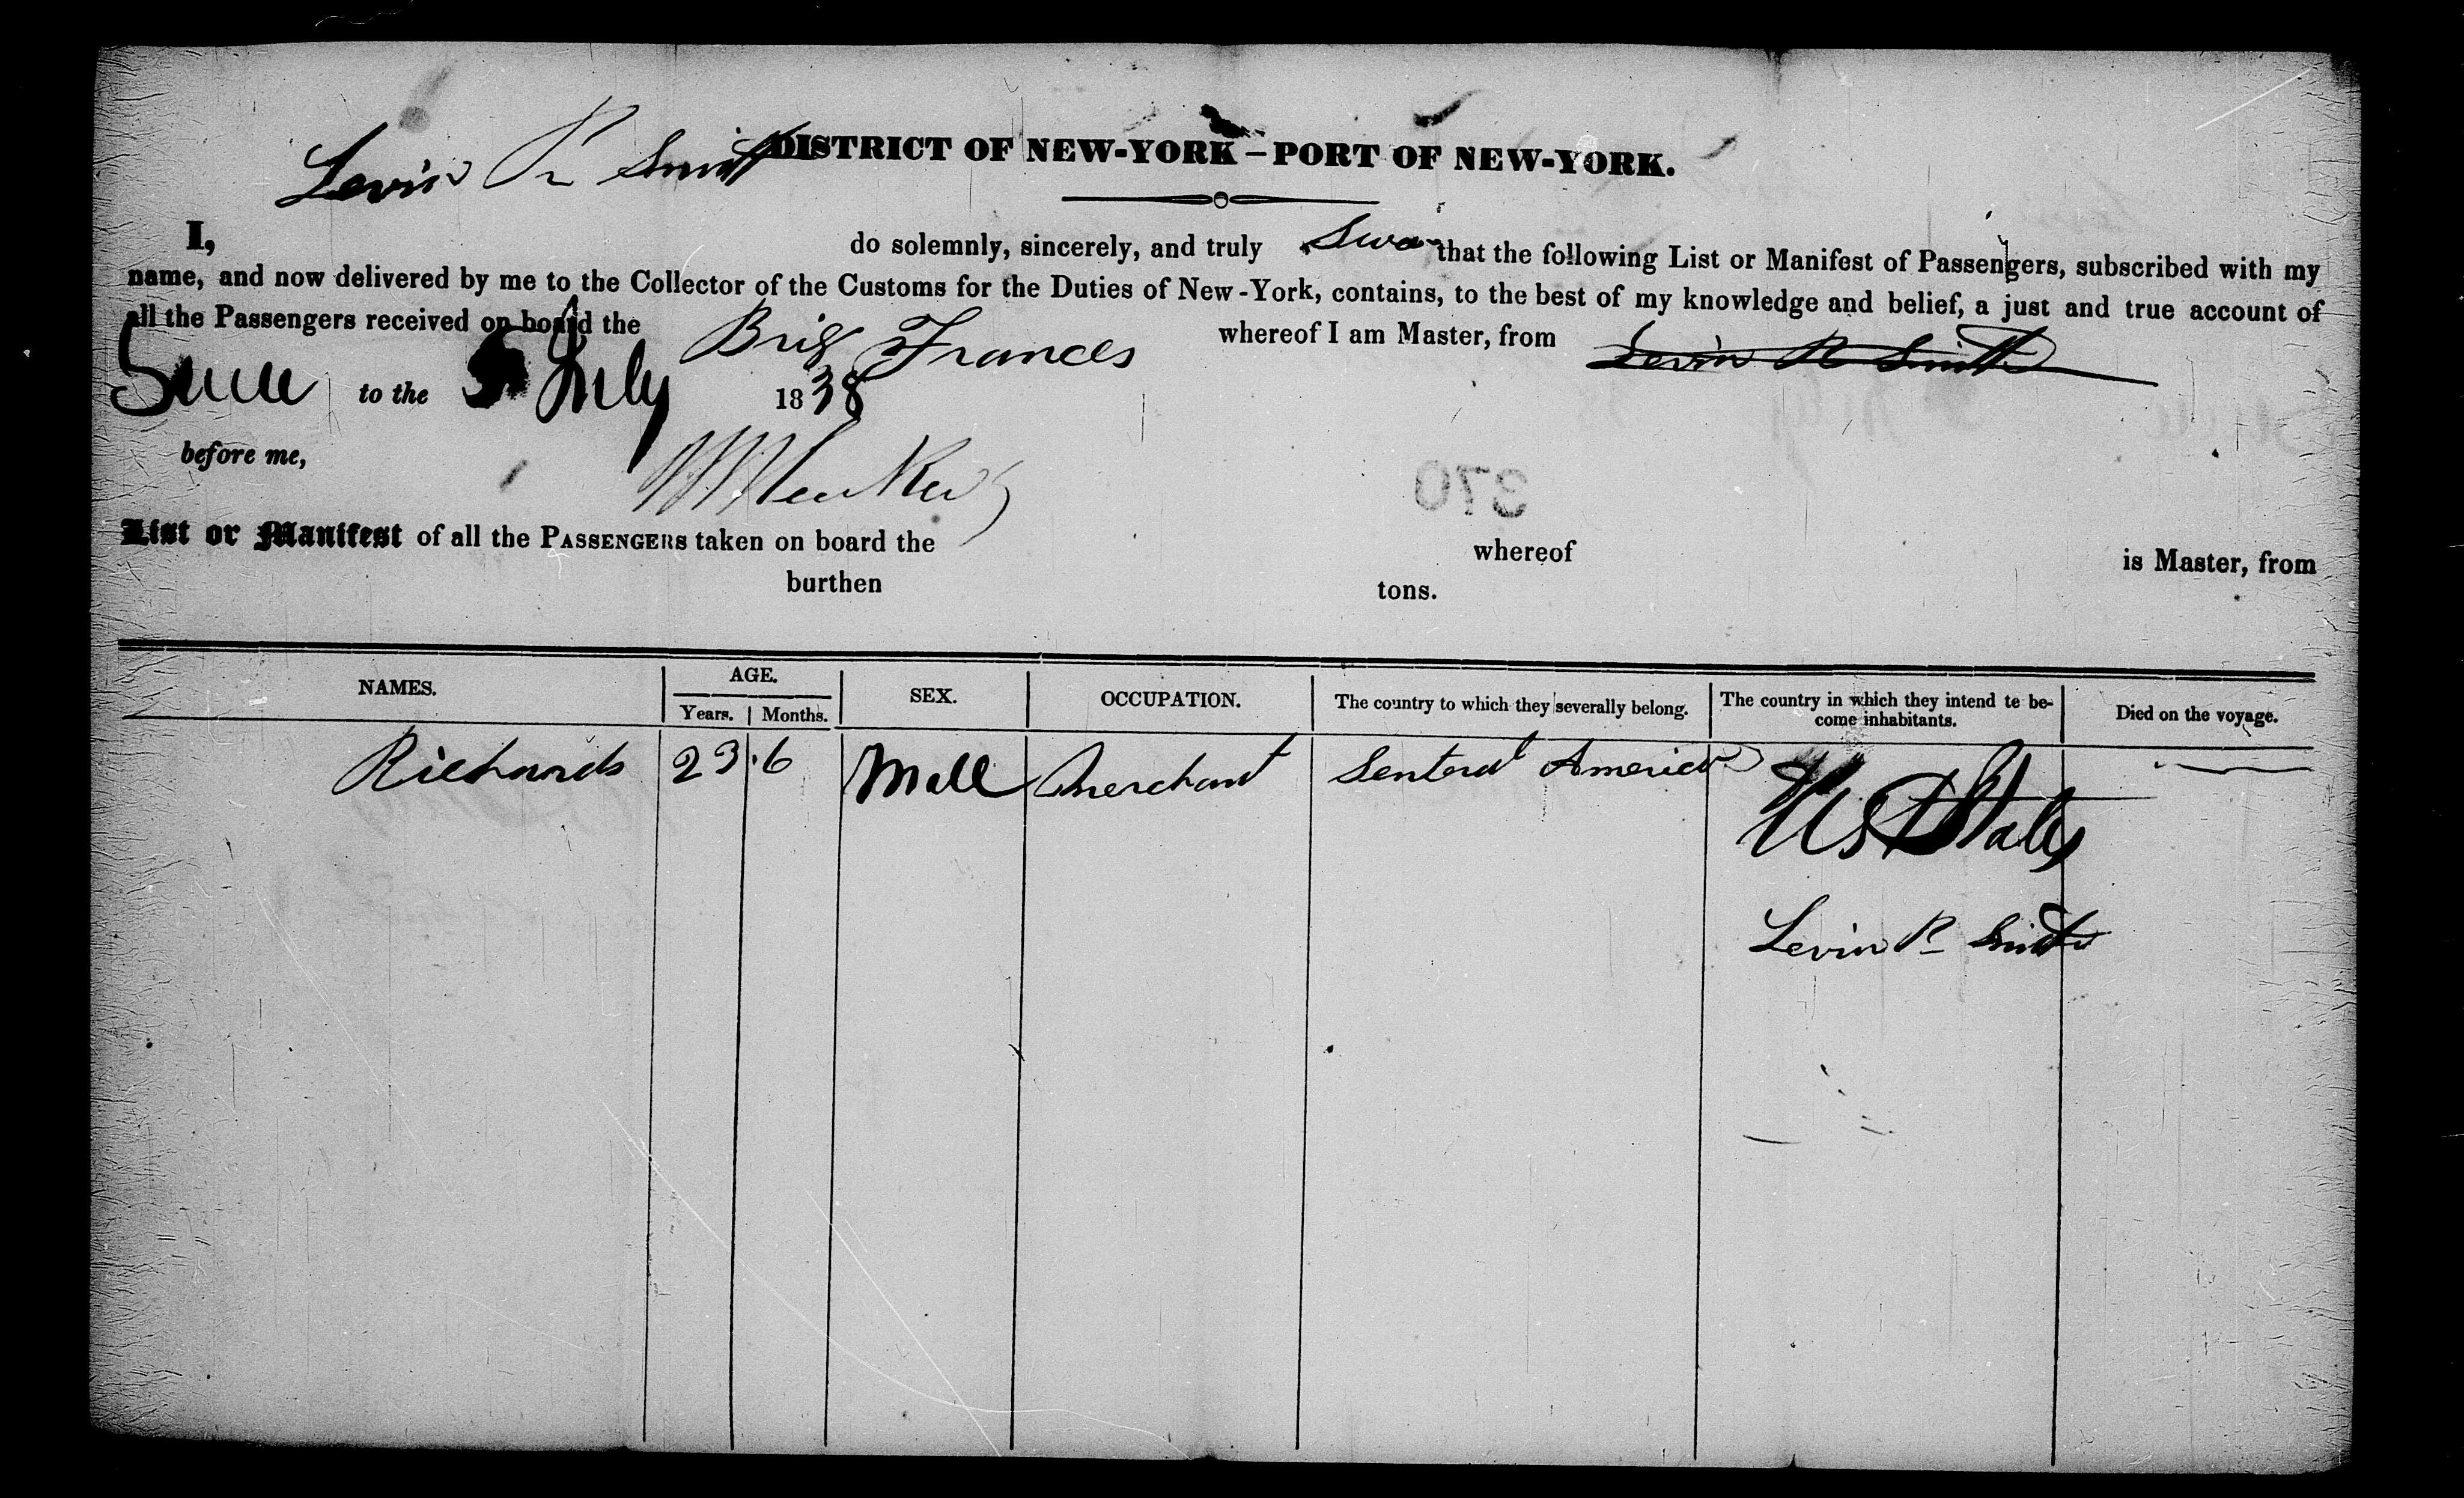 Levin R Smith
DISTRICT OF NEW-YORK - PORT OF NEW-YORK.
I, do solemnly, sincerely, and truly that the following List or Manifest of Passengers, subscribed with my
name, and now delivered by me to the Collector of the Customs for the Duties of New-York, contains, to the best of my knowledge and belief, a just and true account of
all the Passengers received on board the Brig Frances whereof I am Master, from Levin R Smith
to the July 1838
before me,
370
List or Manifest of all the PASSENGERS taken on board the whereof is Master, from
burthen tons.
NAMES. AGE. SEX. OCCUPATION. The country to which they severally belong. The country in which they intend te be-
come inhabitants. Died on the voyage.
Years. Months.
Richards 23 6 Mall Merchant Senteral America
US States
Levin R Smith